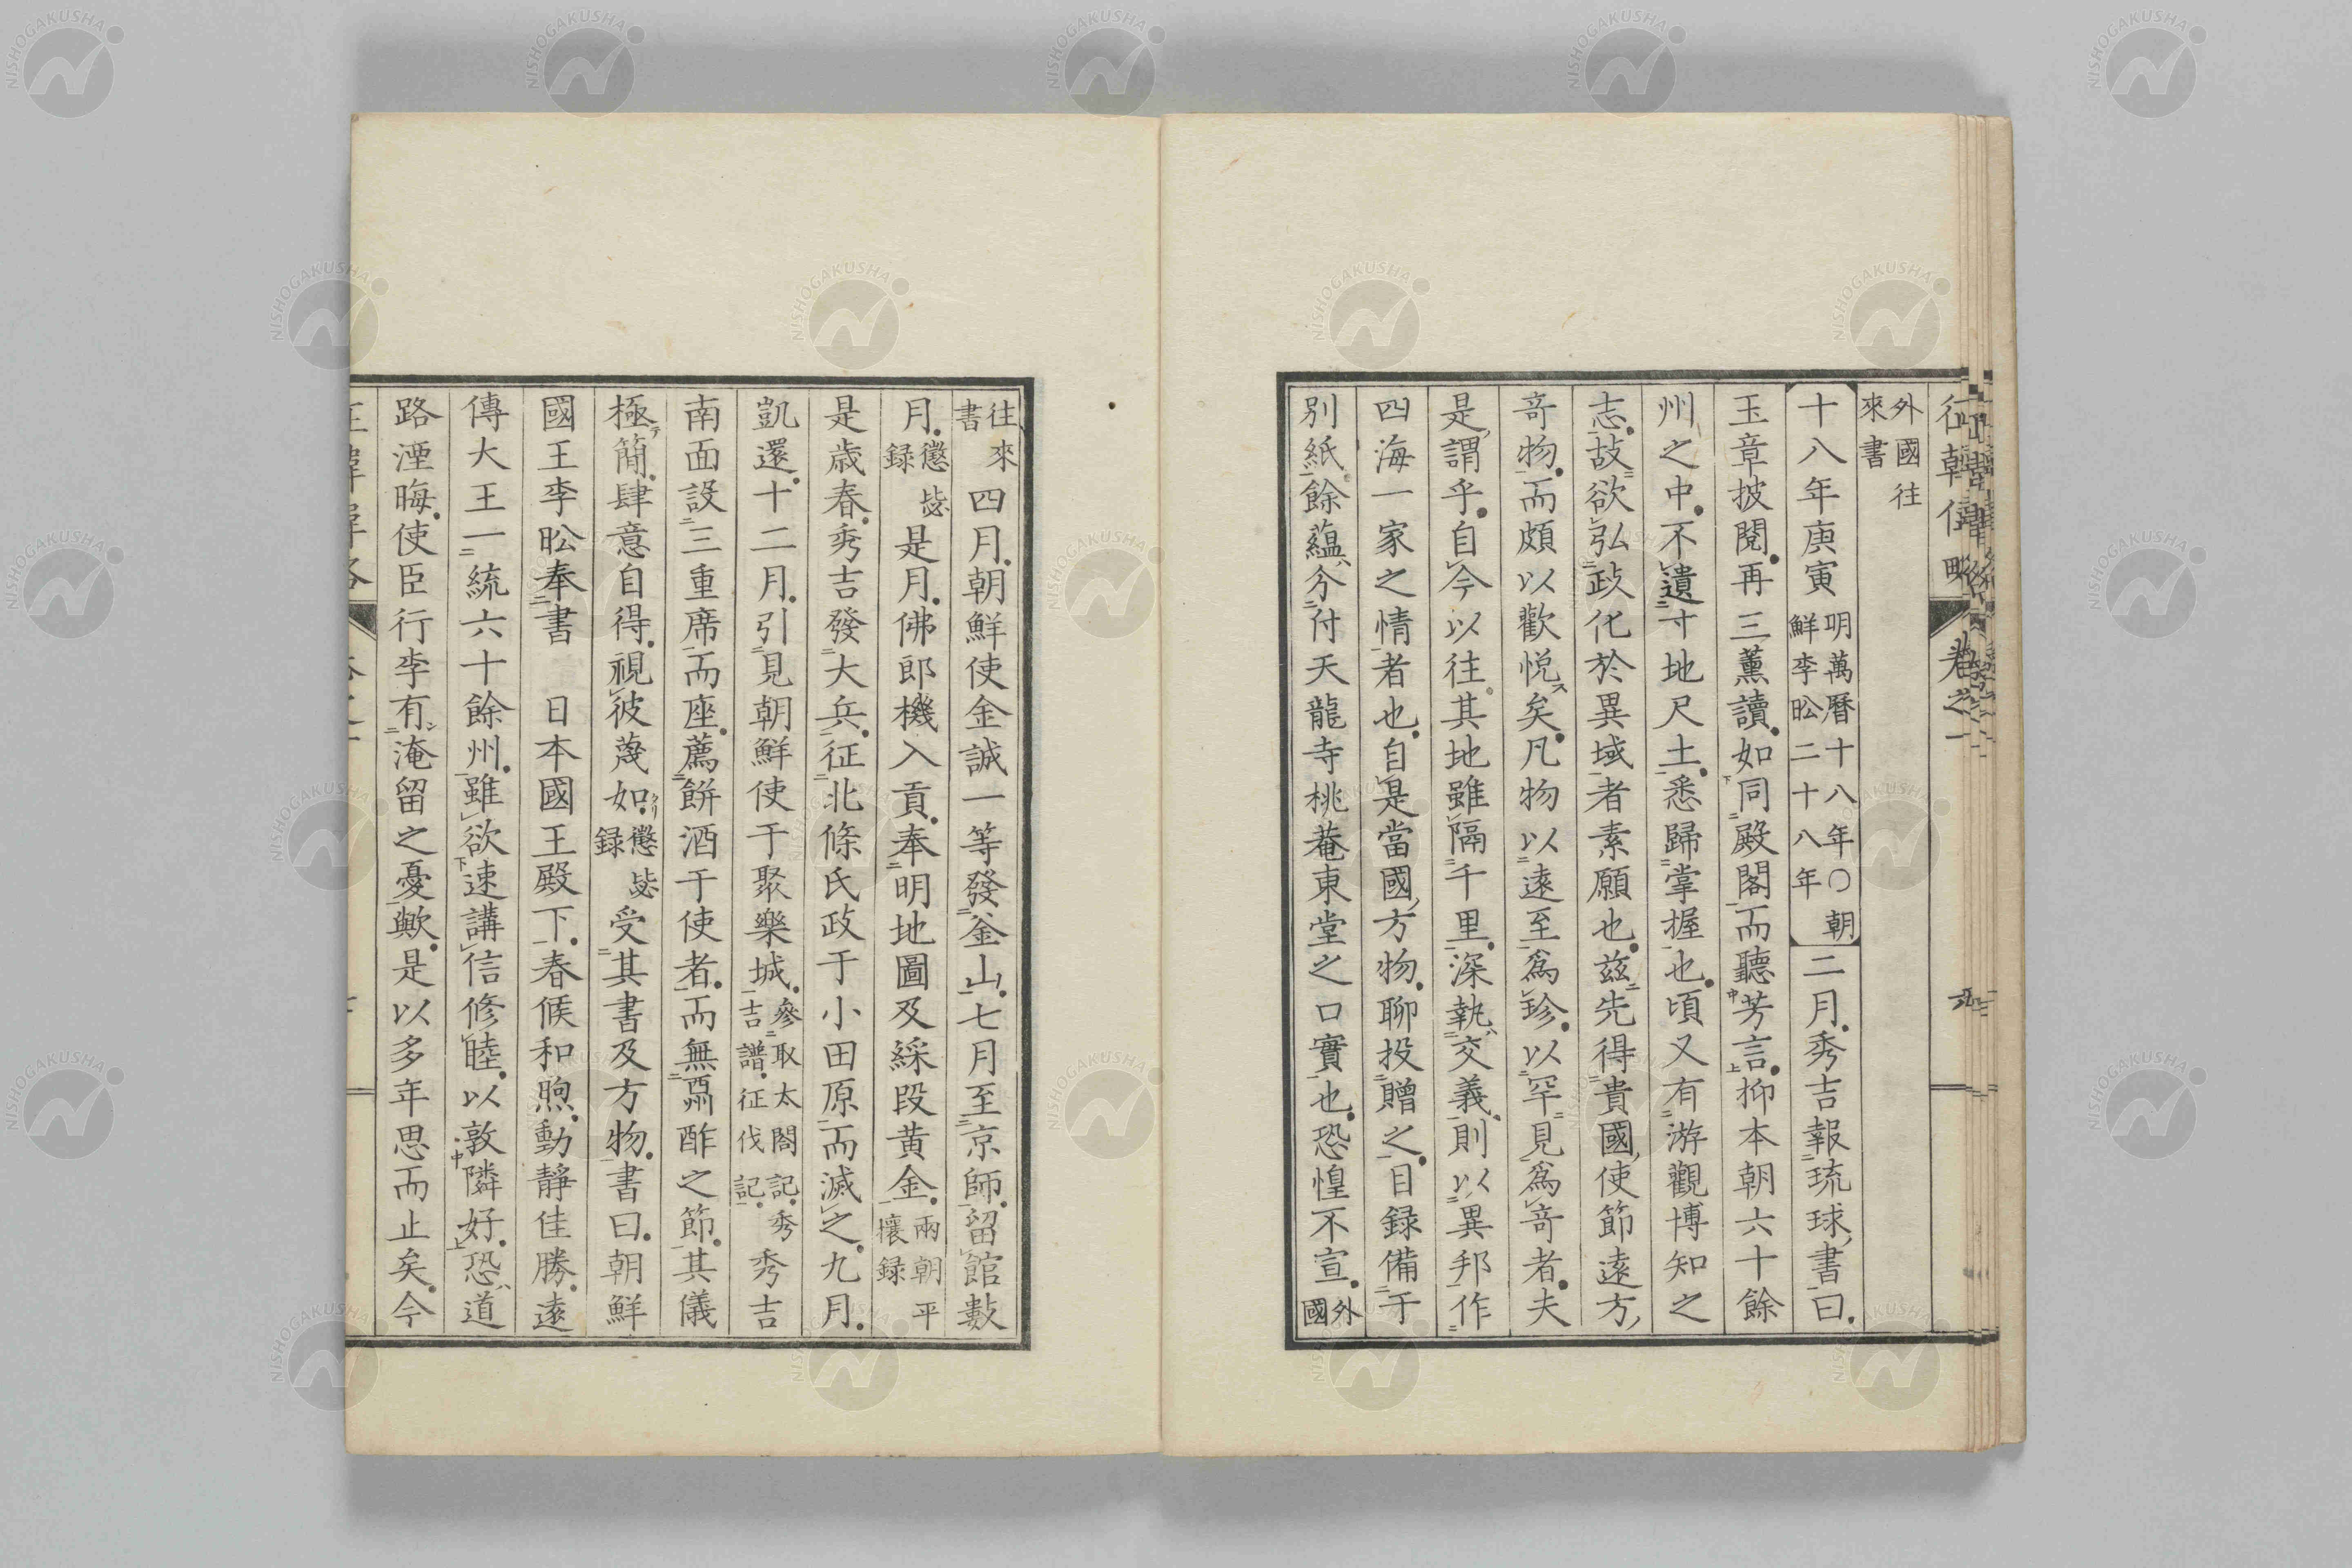 外國往
來書
十八年庚寅明萬曆十八年〇朝鮮李昖二十八年二月秀吉報琉球書曰
玉章披閱再三薰讀如同殿閣而聽芳言抑本朝六十餘
州之中不遺寸地尺土悉歸掌握也頃又有游觀博知之
志故欲弘政化於異域者素願也茲先得貴國使節遠方
奇物而頗以歡悅矣凡物以遠至爲珍以罕見爲奇者夫
是謂乎自今以往其地雖隔千里深執交義則以異邦作
四海一家之情者也自是當國方物聊投贈之目録備于
別紙餘蘊分付天龍寺桃菴東堂之口實也恐惶不宣外國
往來書四月朝鮮使金誠一等發釜山七月至京師留館數
月懲毖録是月佛郎機入貢奉明地圖及綵段黄金兩朝平攘録
是歳春秀吉發大兵征北條氏政于小田原而滅之九月
凱還十二月引見朝鮮使于聚樂城參取太閤記秀吉譜征伐記秀吉
南面設三重席而座薦餅酒于使者而無酬酢之節其儀
極簡肆意自得視彼蔑如懲毖録受其書及方物書曰朝鮮
國王李昖奉書　日本國王殿下春候和煦動靜佳勝遠
傳大王一統六十餘州雖欲速講信修睦以敦隣好恐道
路湮晦使臣行李有淹留之憂歟是以多年思而止矣今